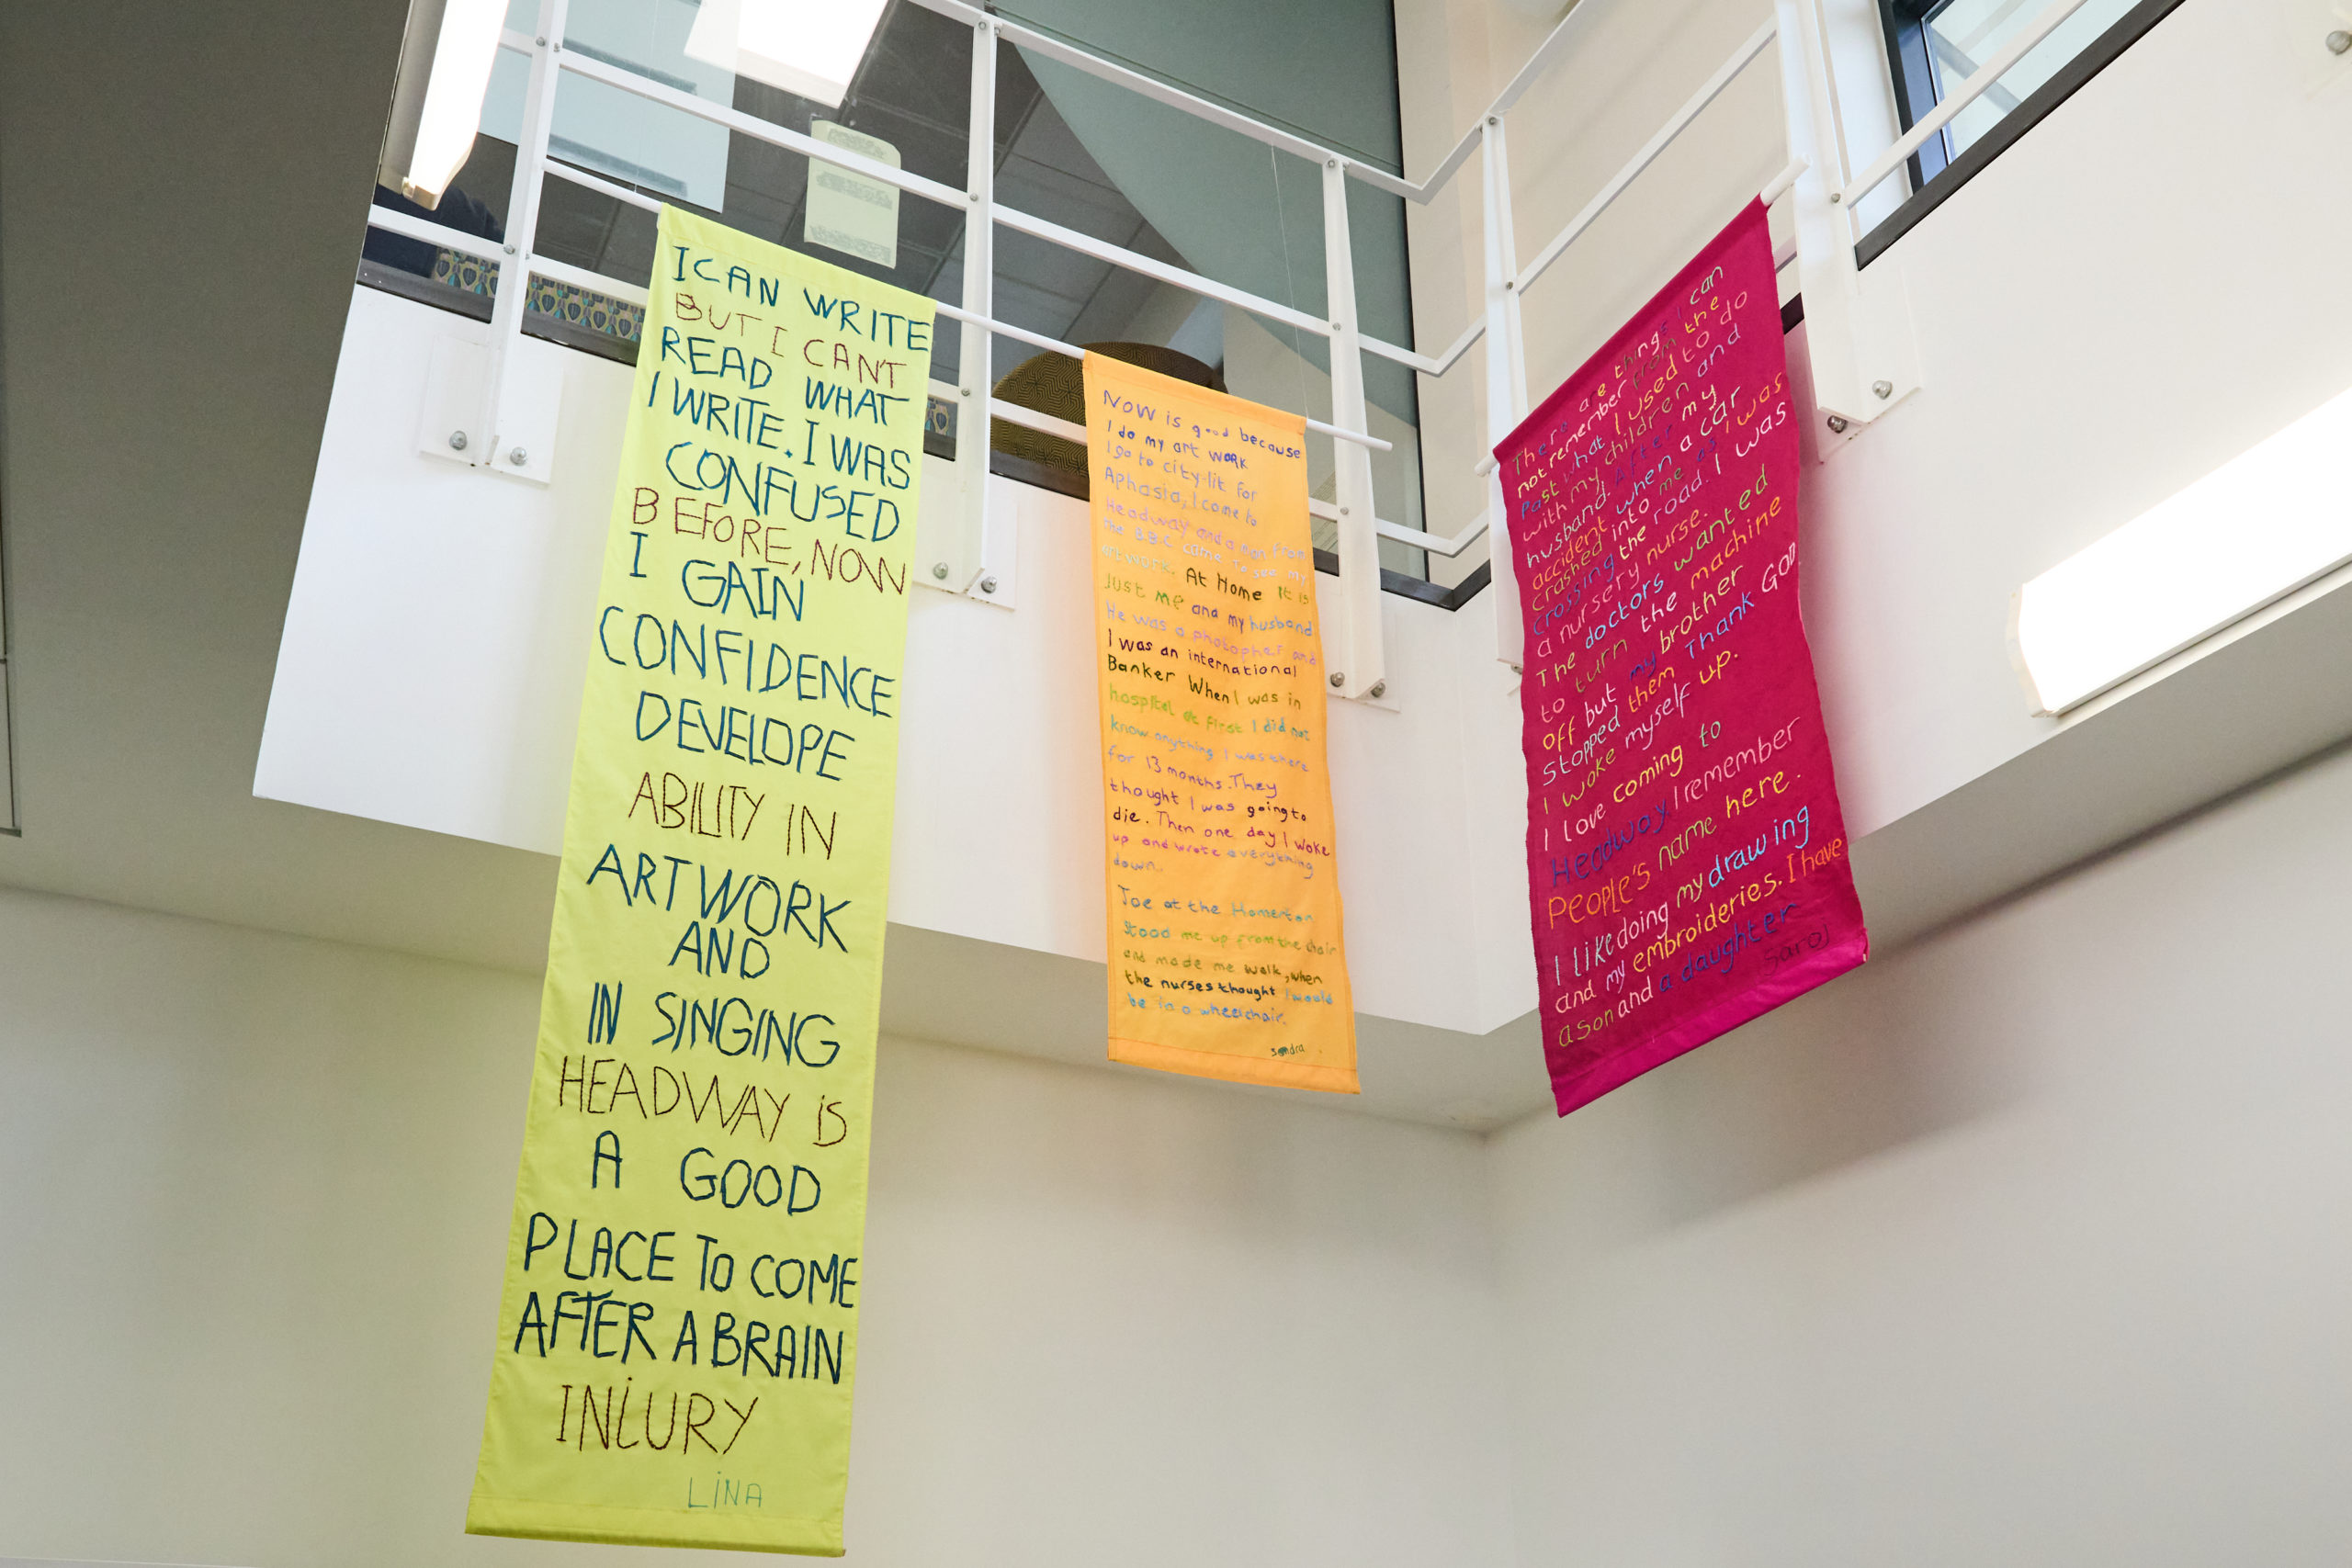 I CAN WRITE
BUT I CANT
READ WHAT
I WRITE. I WAS
CONFUSED
BEFORE, NOW
I GAIN
CONFIDENCE
DEVELOPE
ABILITY IN
ARTWORK
AND
IN SINGING
HEADWAY iS
A GOOD
PLACE TO COME
AFTER A BRAIN
INjURY
LiNA
Now is good because
I do my art work
I go to city-lit for
Aphasia, I come to
Headway and a man from
the B.B.C come to see my
artwork. At Home It is
Just me and my husband
He was a photopher and
I was an international
Banker When I was in
hospital at first I did not
know anything I was there
for 13 months. They
thought I was going to
die. Then one day I woke
up and wrote everything
down.
Joe at the Homerton
Stood me up from the chair
and made me walk, when
the nurses thought I would
be in a wheelchair.
sandra
There are things I can
not remember from the
Past what I used to do
with my children and
husband. After my
accident when a car
crashed into me as I was
crossing the road. I was
a nursery nurse.
The doctors wanted
to turn the machine
off but my brother
stopped them Thank GOD
I woke myself up.
I love coming to
Headway. I remember
PEOPLE'S name here.
I like doing my drawing
and my embroideries. I have
a son and a daughter
Saroj